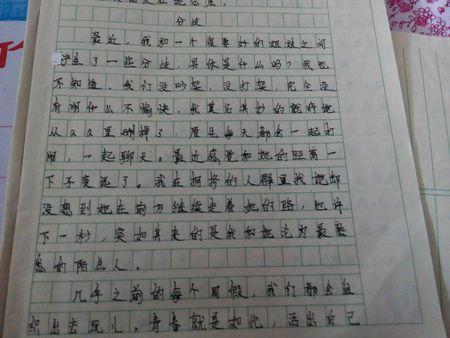 分歧
最近，我和一个很要好的姐妹之间
产生了一些分歧，具体是什么吗？我也
不知道，我们没吵架，没打架，完全没
有什么不愉快，我莫名其妙的就将她
从QQ里删掉了，原先每天都会一起打
闹，一起聊天。最近感觉和她的距离一
下子变远了。我在拥挤的人群里找她却
没想到她在前方继续走着她的路，也许
下一秒，突如其来的是我和她沦为最熟
悉的陌生人。
几年之前的每个周假，我们都会
出去玩儿，青春就是如此，活出自己